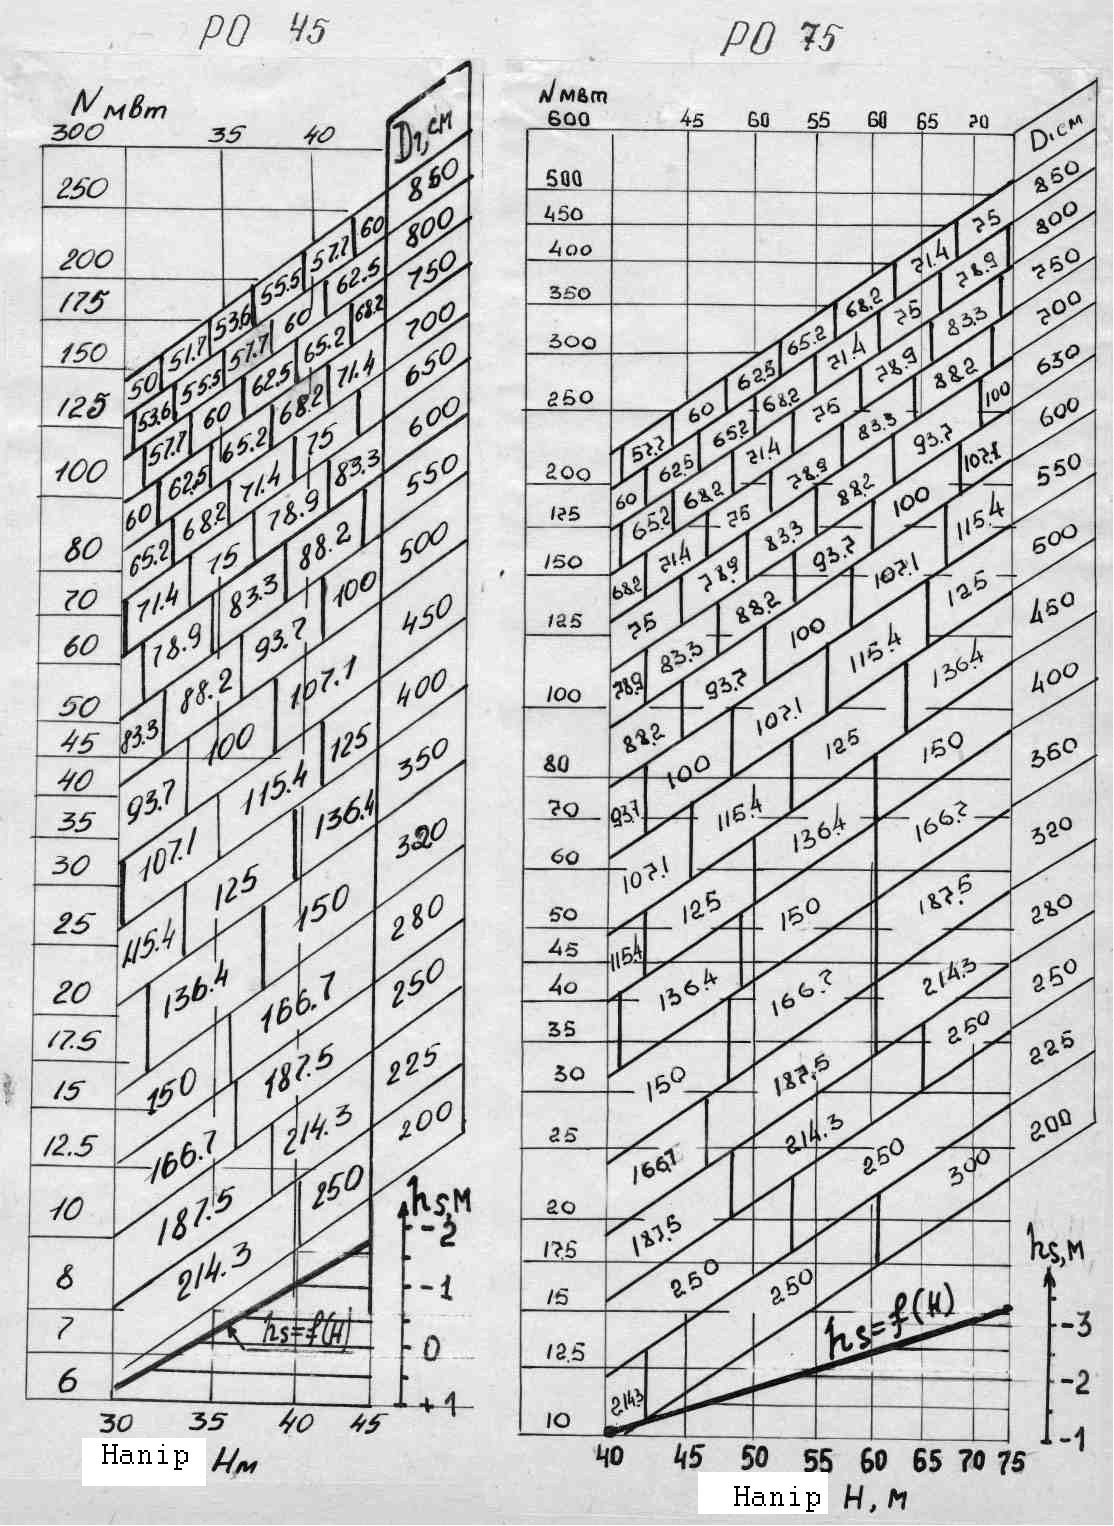 РО 45
N мвт
300
35 40
D1, см
250
200
175
150
125
100
80
70
60
50
45
40
35
30
25
20
17.5
15
12.5
10
8
7
6
50 51.7 53.6 55.5 57.7 60 850
53.6 55.5 57.7 60 62.5 800
57.7 60 62.5 65.2 68.2 750
60 62.5 65.2 68.2 71.4 700
65.2 68.2 71.4 75 650
71.4 75 78.9 83.3 600
78.9 83.3 88.2 550
83.3 88.2 93.7 100 500
93.7 100 107.1 450
107.1 115.4 125 400
115.4 125 136.4 350
136.4 150 320
150 166.7 280
166.7 187.5 250
187.5 214.3 225
214.3 250 200
hs, м
-2
-1
0
+1
hs=f(H)
30 35 40 45
Напір Нм
РО 75
N мвт
600
45 60 55 60 65 70
D1 см
500
450
400
350
300
250
200
175
150
125
100
80
70
60
50
45
40
35
30
25
20
17.5
15
12.5
10
57.7 60 62.5 65.2 68.2 71.4 75 850
60 62.5 65.2 68.2 71.4 75 78.9 800
65.2 68.2 71.4 75 78.9 83.3 750
68.2 71.4 75 78.9 83.3 88.2 700
75 78.9 83.3 88.2 93.7 100 650
78.9 83.3 88.2 93.7 100 107.1 600
88.2 93.7 100 107.1 115.4 550
93.7 100 107.1 115.4 125 500
107.1 115.4 125 136.4 450
115.4 125 136.4 150 400
136.4 150 166.7 350
150 166.7 187.5 320
166.7 187.5 214.3 280
187.5 214.3 250 250
250 250 225
214.3 250 300 200
hs, м
-3
-2
-1
hs=f(H)
40 45 50 55 60 65 70 75
Напір Н, м